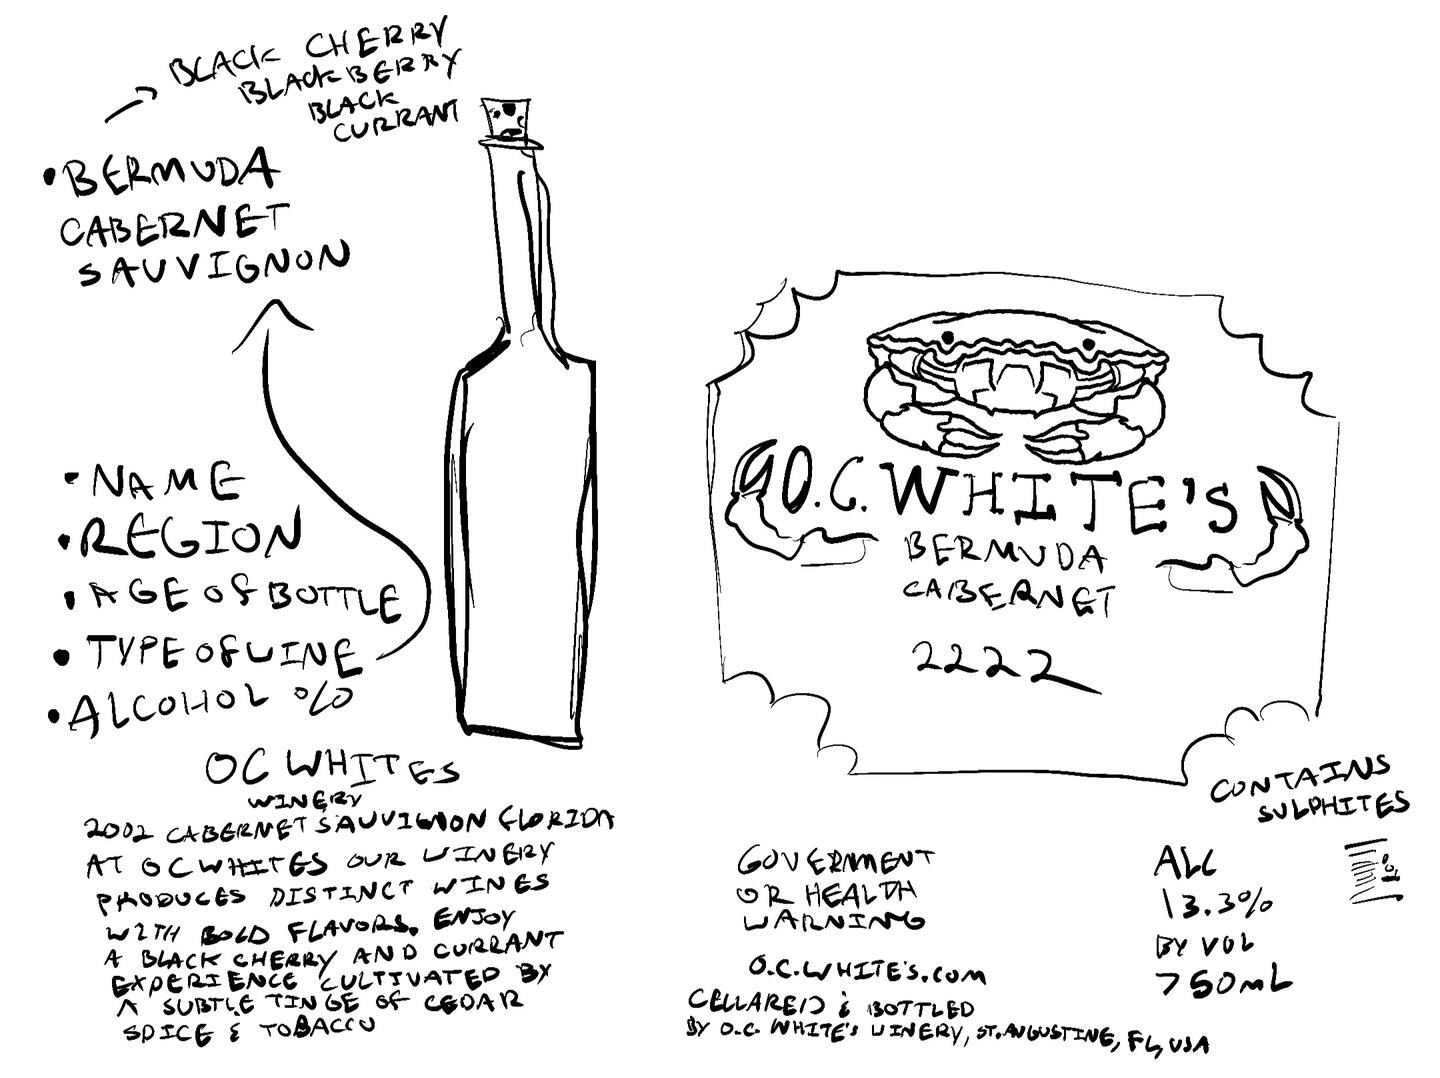 → BLACK CHERRY
BLACKBERRY
BLACK
CURRANT
• BERMUDA
CABERNET
SAUVIGNON
• NAME
• REGION
• AGE OF BOTTLE
• TYPE OF WINE
• ALCOHOL %
OC WHITES
WINERY
2002 CABERNET SAUVIGNON FLORIDA
AT OC WHITES OUR WINERY
PRODUCES DISTINCT WINES
WITH BOLD FLAVORS. ENJOY
A BLACK CHERRY AND CURRANT
EXPERIENCE CULTIVATED BY
A SUBTLE TINGE OF CEDAR
SPICE & TOBACCO
O.C. WHITE'S
BERMUDA
CABERNET
2222
CONTAINS
SULPHITES
GOVERNMENT
OR HEALTH
WARNING
O.C.WHITE'S.COM
CELLARED & BOTTLED
BY O.C. WHITE'S WINERY, ST. AUGUSTINE, FL, USA
ALC
13.3%
BY VOL
750mL